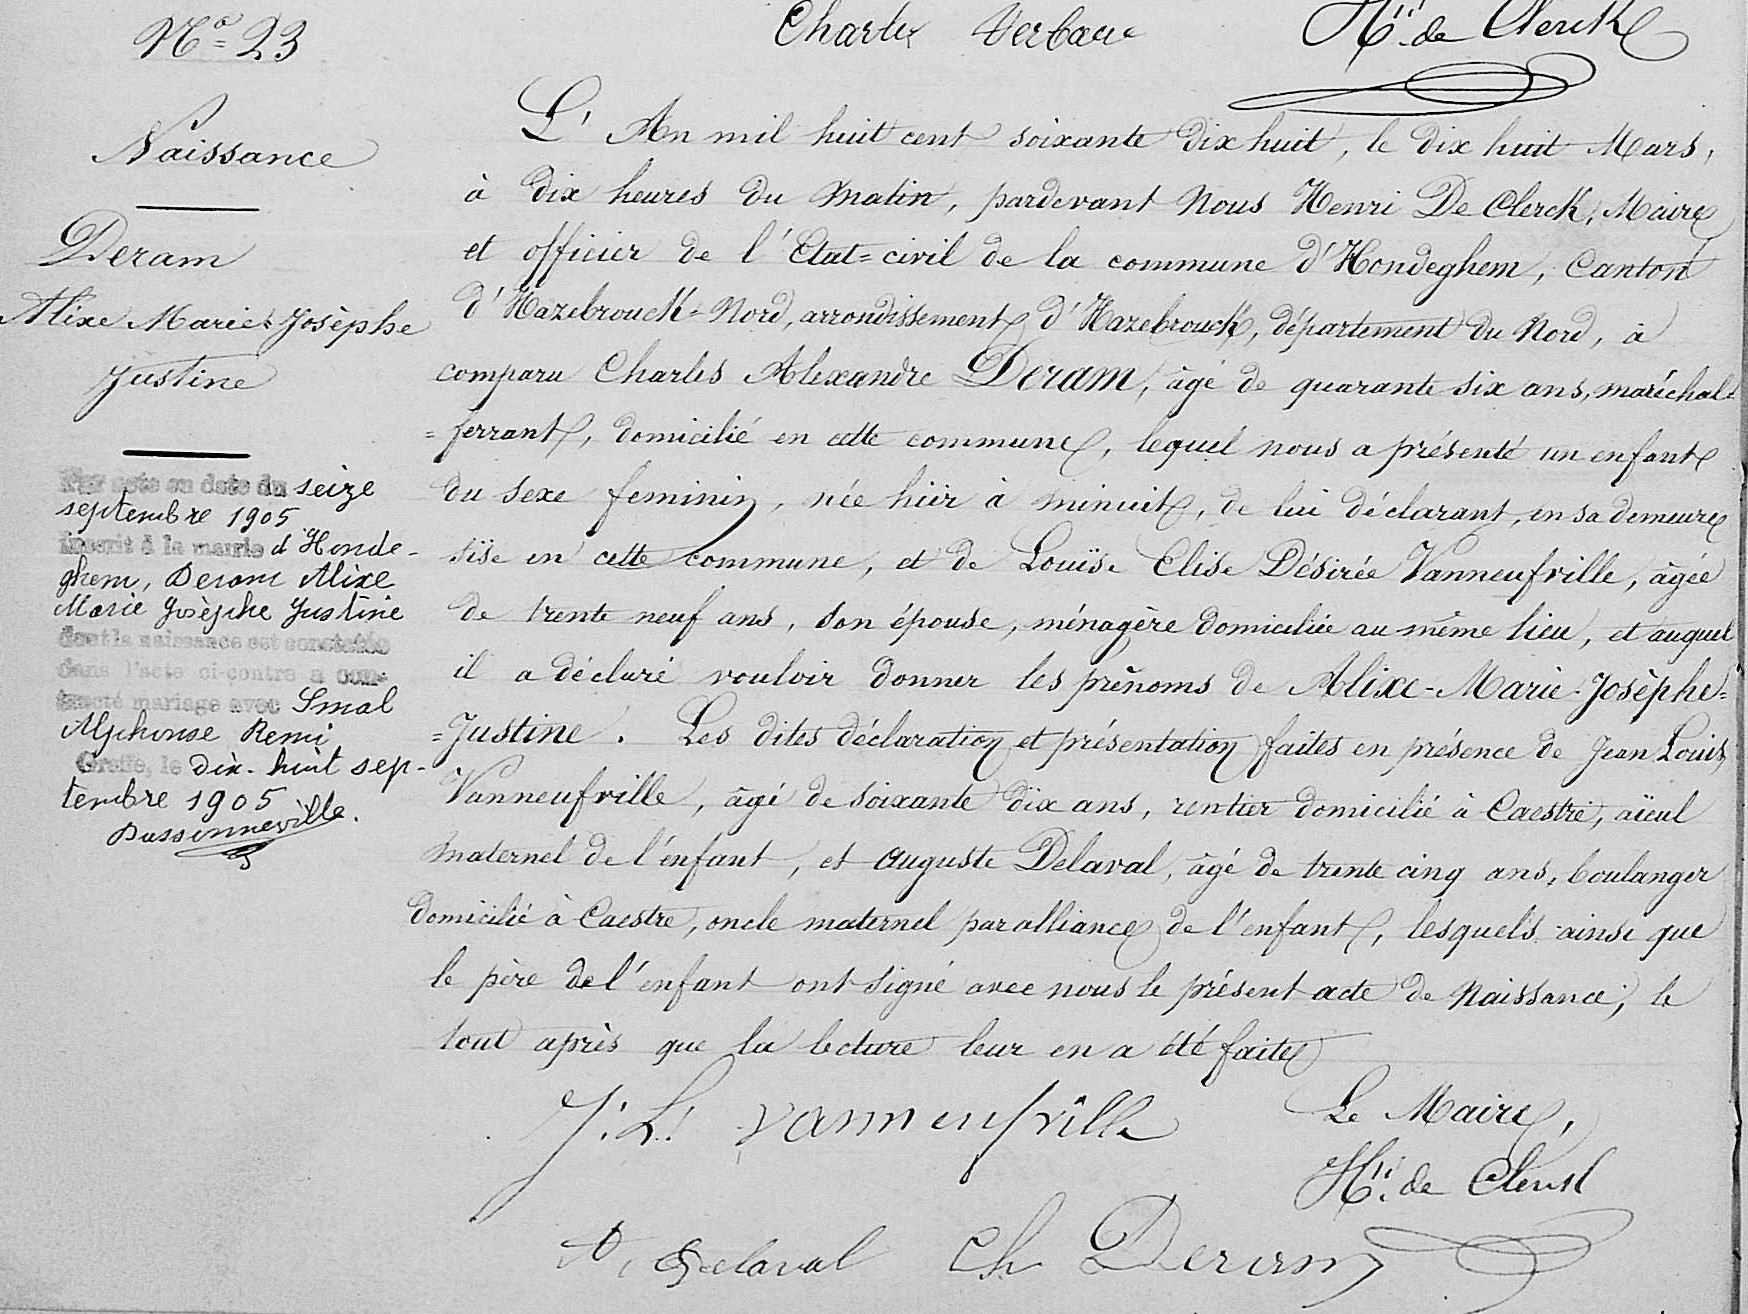 Nº 23
Charles Verbaere Hri de Clerck
Naissance
Deram
Alixe Marie Josèphe
Justine
Par acte en date du seize
septembre 1905
inscrit à la mairie d'Honde-
ghem, Deram Alixe
Marie Josèphe Justine
dont la naissance est constatée
dans l'acte ci-contre a con-
tracté mariage avec Smal
Alphonse Remi
Greffe, le dix-huit sep-
tembre 1905
Dassonneville.
L'An mil huit cent soixante dix huit, le dix huit Mars,
à dix heures du matin, pardevant Nous Henri De Clerck, Maire
et officier de l'Etat=civil de la commune d'Hondeghem, Canton
d'Hazebrouck-Nord, arrondissement d'Hazebrouck, département du Nord, à
comparu Charles Alexandre Deram, âgé de quarante six ans, maréchal=
=ferrant, domicilié en cette commune, lequel nous a présenté un enfant
du sexe feminin, née hier à minuit, de lui déclarant, en sa demeure
sïse en cette commune, et de Louïse Elise Désirée Vanneufville, âgée
de trente neuf ans, son épouse, ménagère domiciliée au même lieu, et auquel
il a déclaré vouloir donner les prénoms de Alixe-Marie-Josèphe=
=Justine. Les dites déclaration et présentation faites en présence de Jean Louis
Vanneufville, âgé de soixante dix ans, rentier domicilié à Caestre, aïeul
maternel de l'enfant, et Auguste Delaval, âgé de trente cinq ans, boulanger
domicilié à Caestre, oncle maternel par alliance de l'enfant, lesquels ainsi que
le père de l'enfant ont signé avec nous le présent acte de Naissance, le
tout après que la lecture leur en a été faite
J. L. Vanneufville Le Maire,
Hri de Clerck
A. Delaval Ch Deram